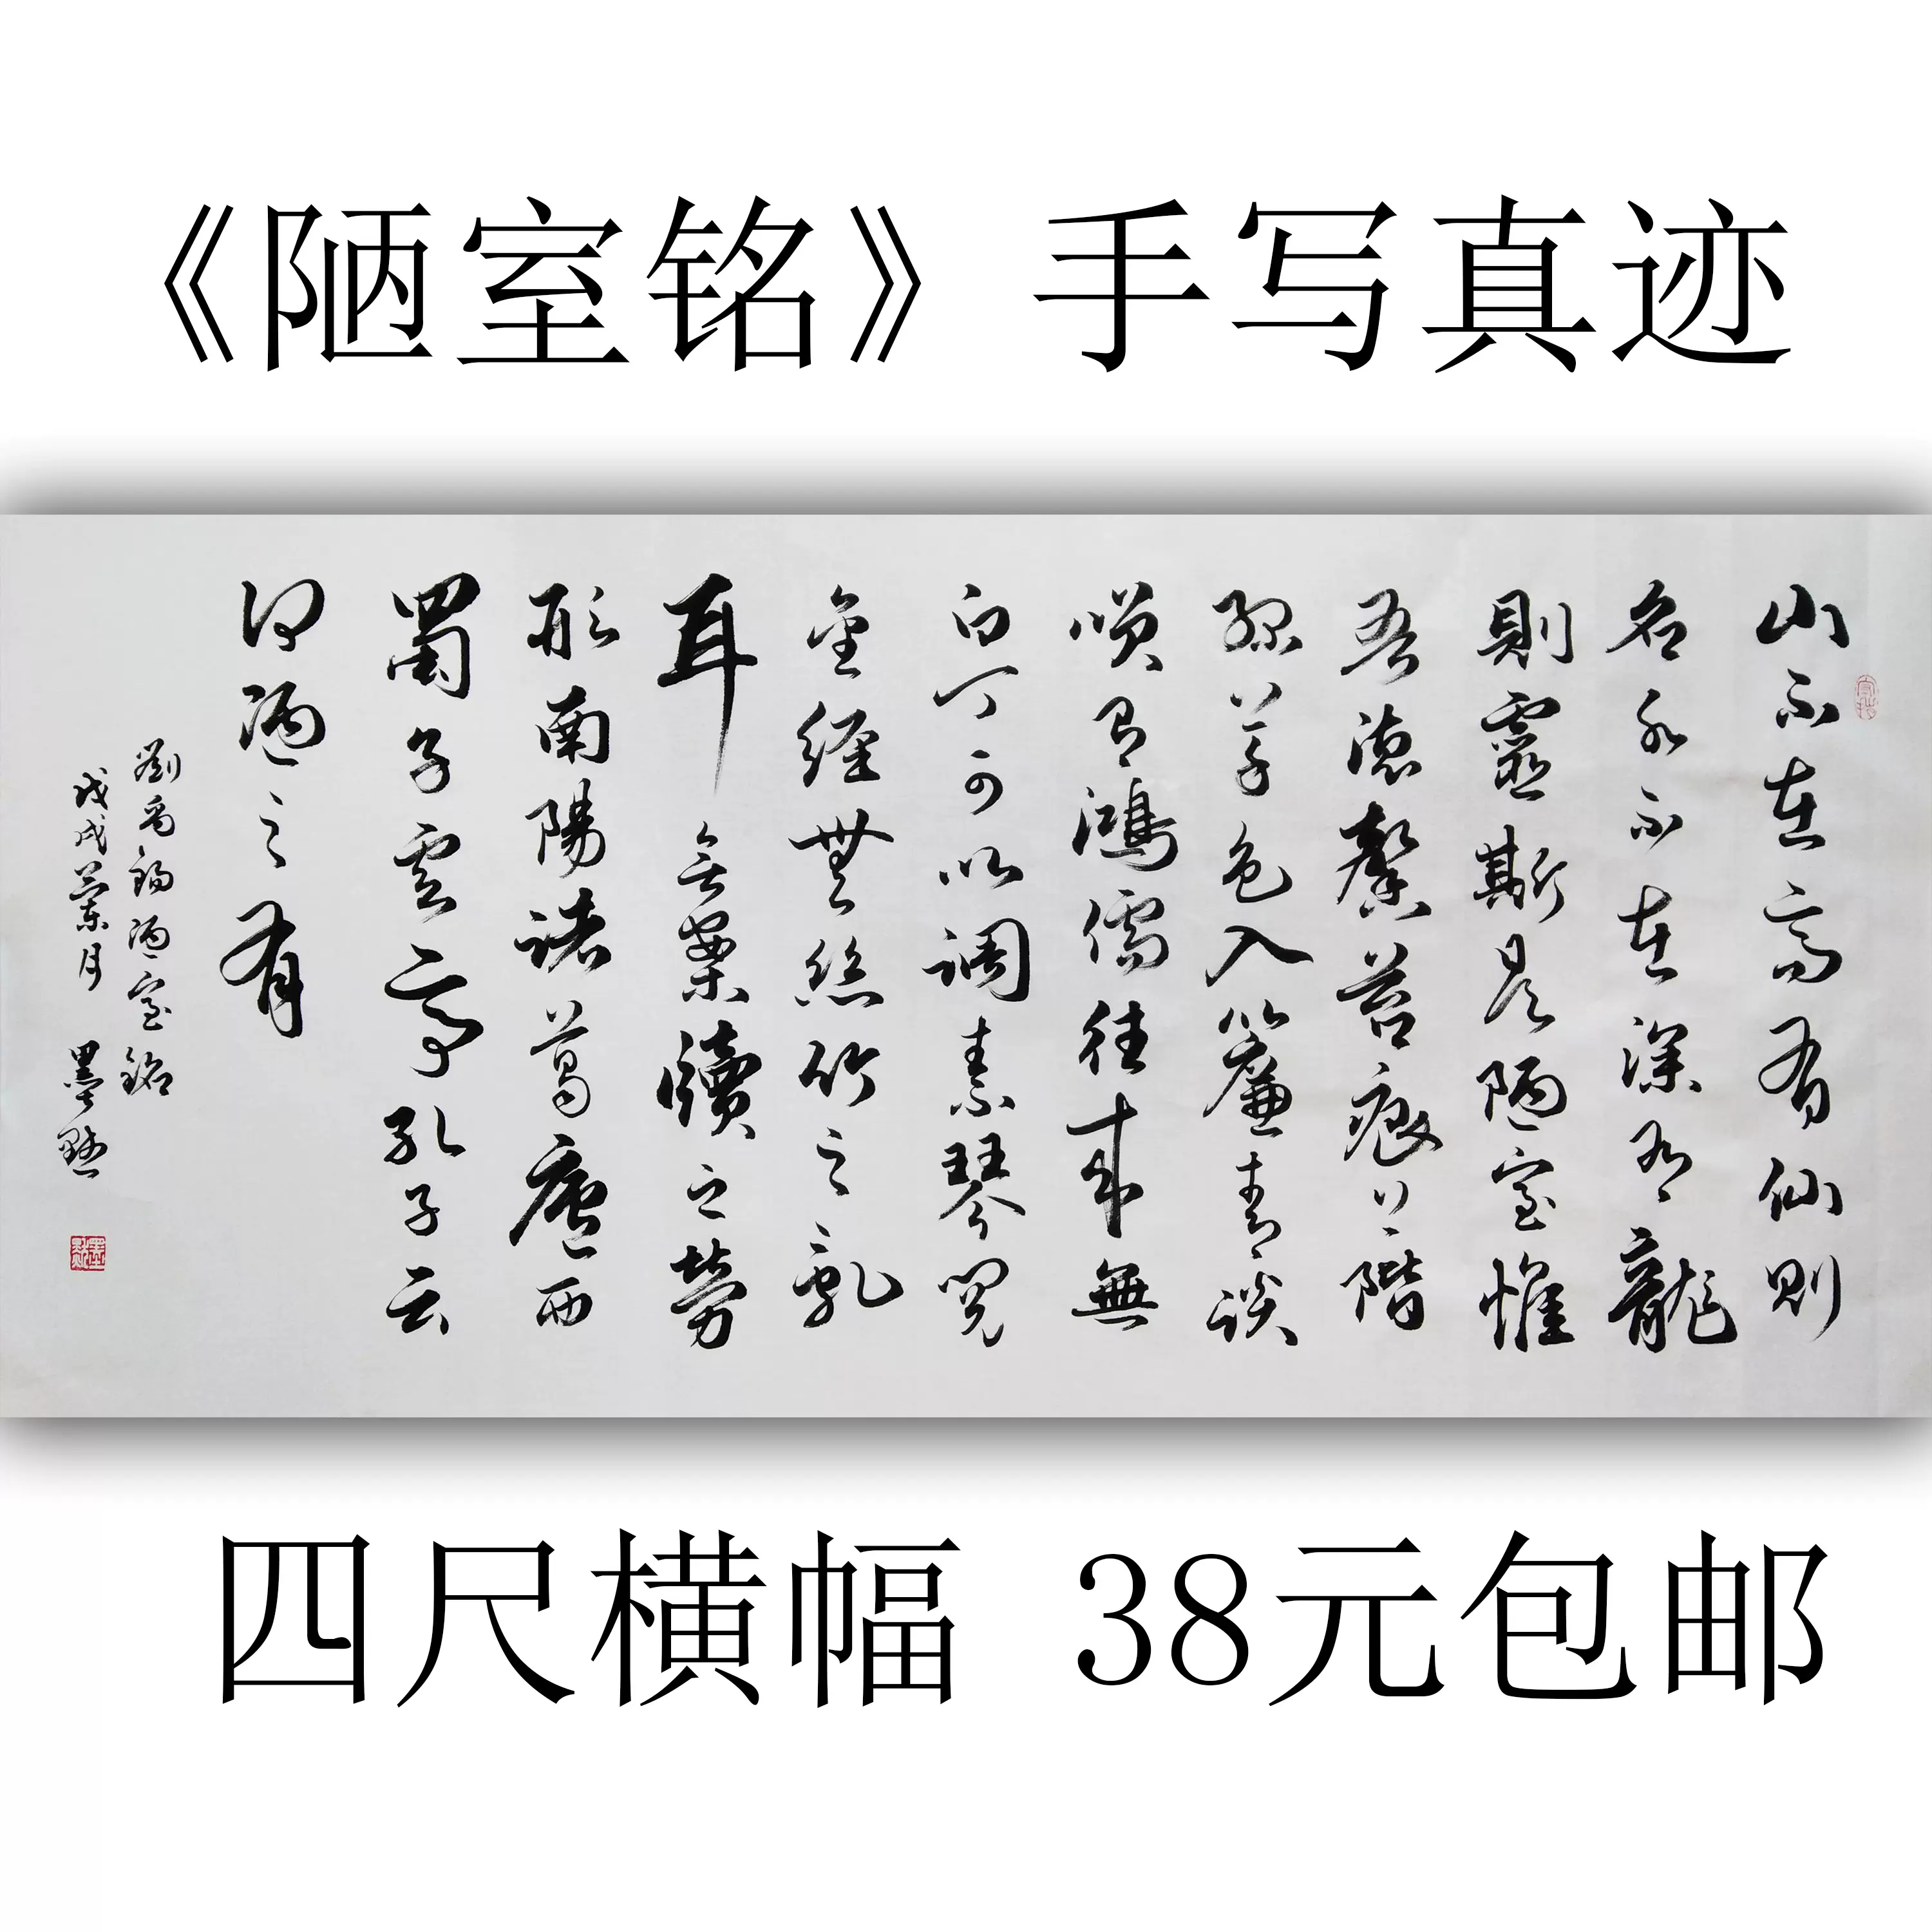 《陋室铭》手写真迹
山不在高有仙则
名水不在深有龍
則靈斯是陋室惟
吾德馨苔痕上階
綠草色入簾青談
笑有鴻儒往來無
白丁可以调素琴閱
金經無絲竹之亂
耳無案牘之勞
形南陽諸葛廬西
蜀子雲亭孔子云
何陋之有
劉禹錫陋室銘
戊戌蘭月 墨默
四尺横幅 38元包邮